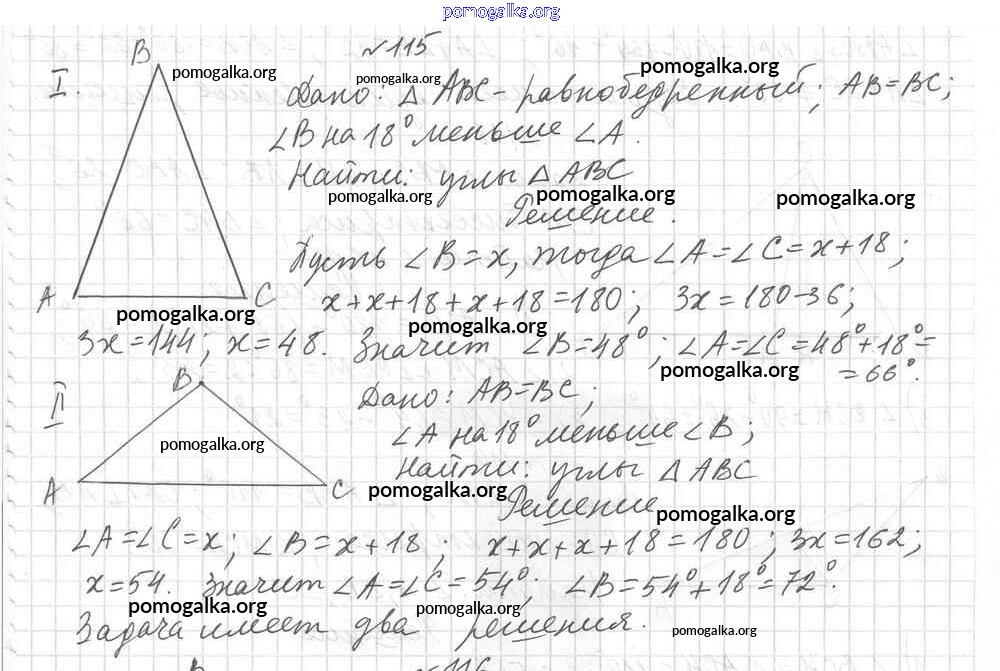 pomogalka.org
№115
B
I.
pomogalka.org
pomogalka.org
pomogalka.org
Дано: △ ABC - равнобедренный; AB=BC;
∠B на 18° меньше ∠A.
Найти: углы △ ABC
pomogalka.org
pomogalka.org
pomogalka.org
Решение.
Пусть ∠B=x, тогда ∠A=∠C=x+18;
A
C
x+x+18+x+18=180; 3x=180-36;
pomogalka.org
pomogalka.org
3x=144; x=48. Значит ∠B=48°; ∠A=∠C=48°+18°=
=66°.
pomogalka.org
B
II
Дано: AB=BC;
∠A на 18° меньше ∠B;
pomogalka.org
Найти: углы △ ABC
A
C
pomogalka.org
Решение
pomogalka.org
∠A=∠C=x; ∠B=x+18; x+x+x+18=180; 3x=162;
x=54. Значит ∠A=∠C=54°; ∠B=54°+18°=72°.
pomogalka.org
pomogalka.org
Задача имеет два решения.
pomogalka.org
B
№116